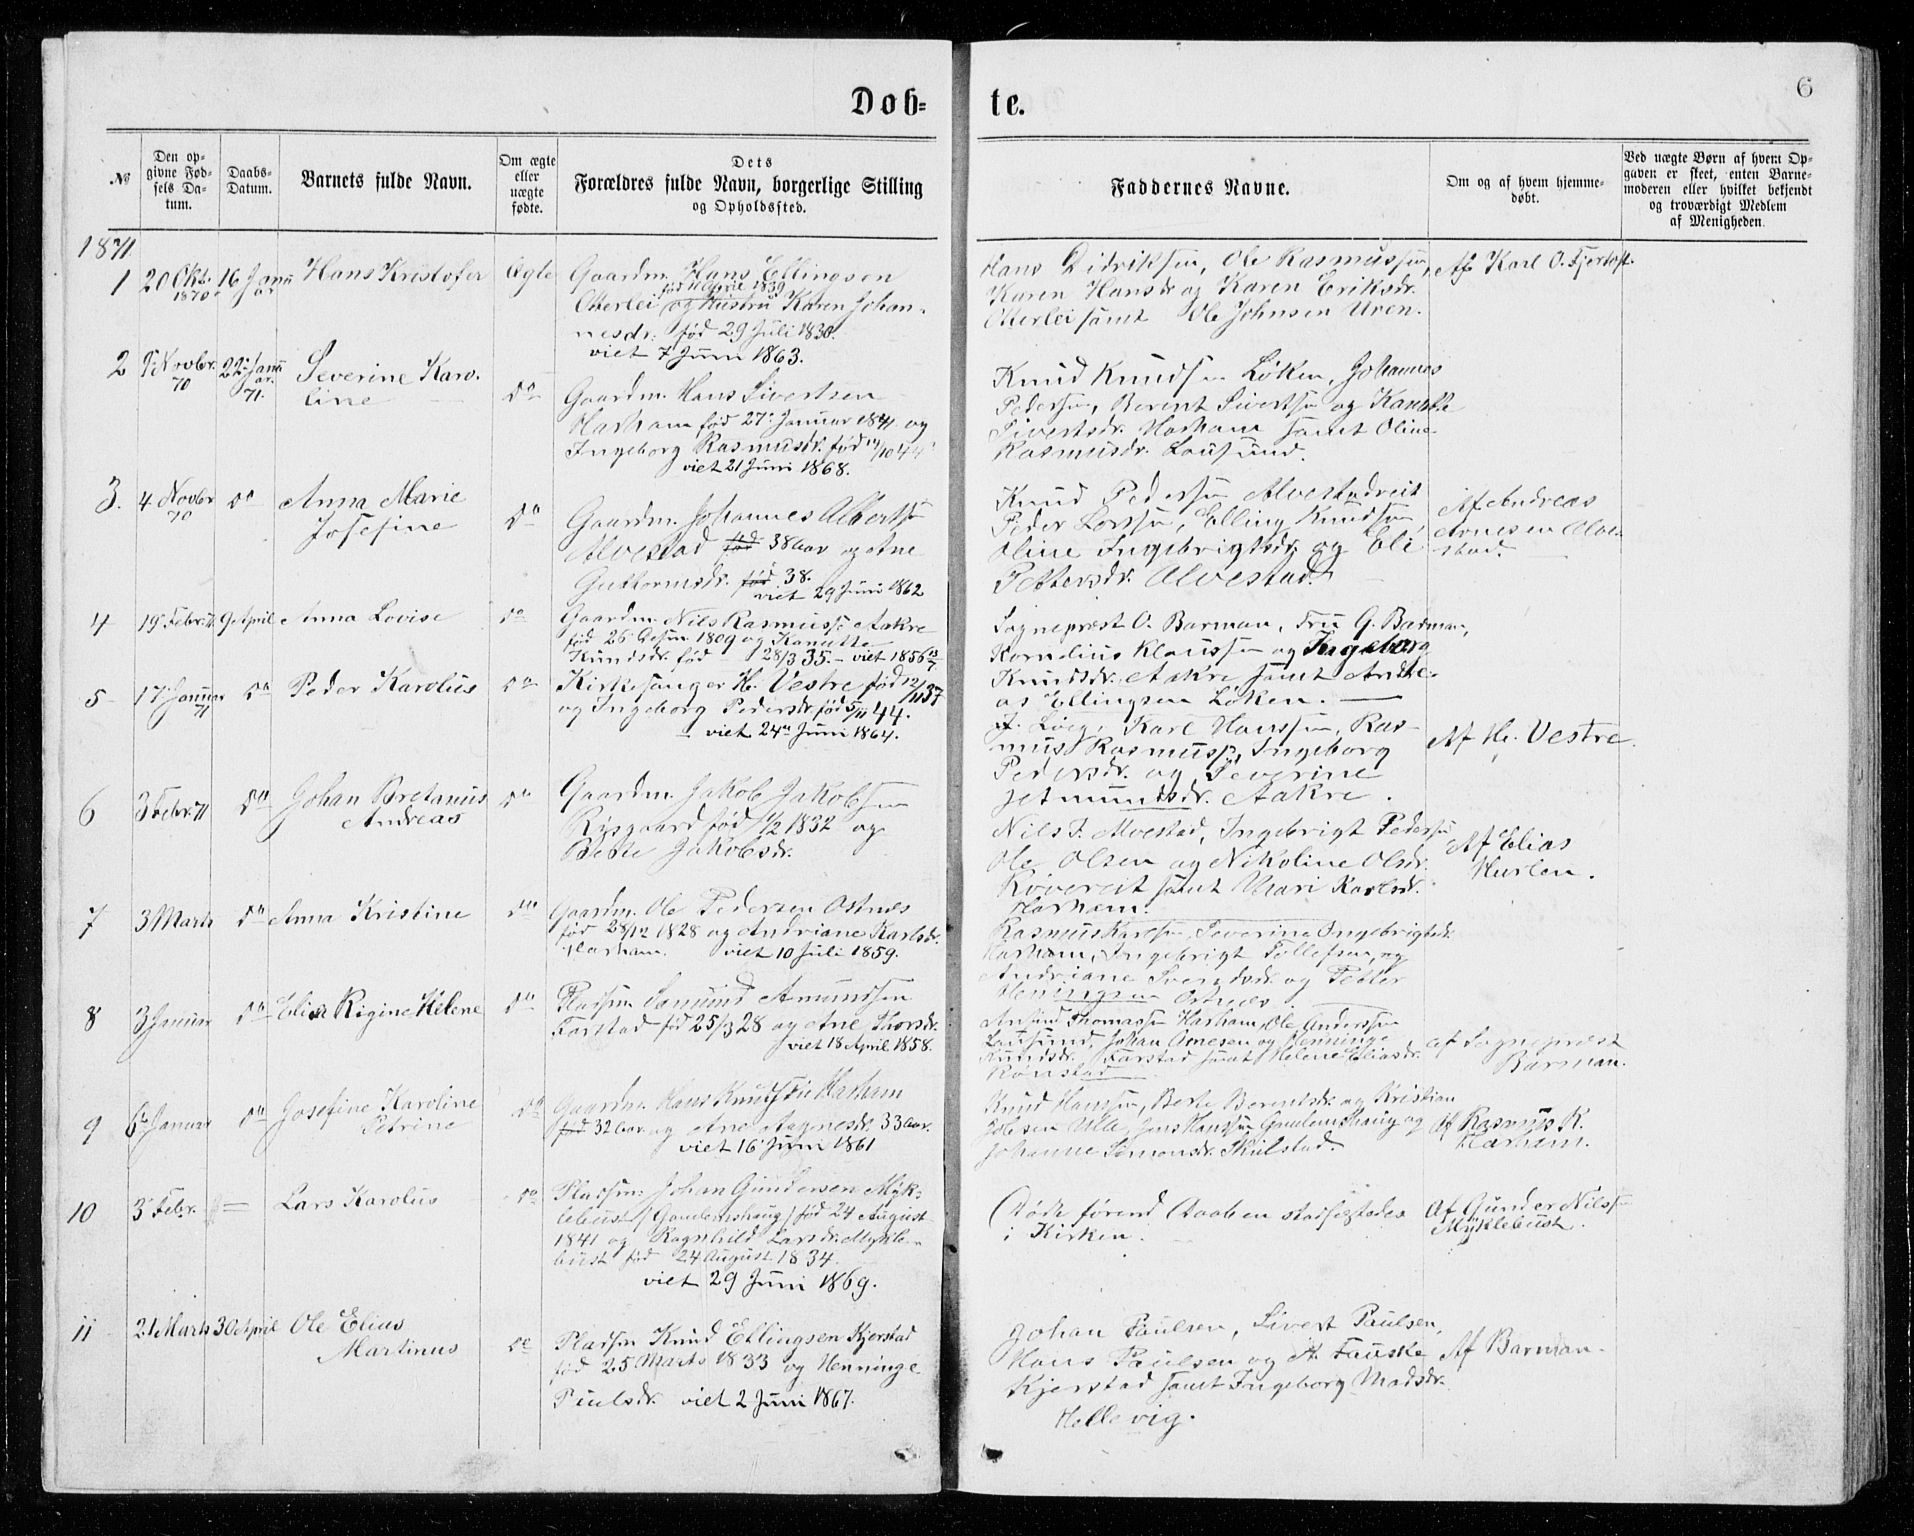 6
Døb=
te.
№
Den op-
givne Fød-
sels Da-
tum.
Daabs-
Datum.
Barnets fulde Navn.
Om ægte
eller
uægte
fødte.
Dets
Forældres fulde Navn, borgerlige Stilling
og Opholdssted.
Faddernes Navne.
Om og af hvem hjemme-
døbt.
Ved uægte Børn af hvem Op-
gaven er skeet, enten Barne-
moderen eller hvilket bekjendt
og troværdigt Medlem
af Menigheden.
1871
1
20 Okt.
1870
16 Janu
ar
Hans Kristofer
Ægte
Gaardm. Hans Ellingsen
født April 1839
Otterlei og Hustru Karen Johan-
nesdr. fød 29 Juli 1830.
viet 7 Juni 1863.
Hans Didriksen, Ole Rasmussen,
Karen Hansdr og Karen Eriksdr.
Otterlei samt Ole Johnsen Uren.
Af Karl O. Fjertoft.
2
Novbr.
70
22 Janu
ar.
71.
Severine Karo-
line
do
Gaardm. Hans Sivertsen
Harham fød 27 Januar 1841 og
Ingeborg Rasmusdr. fød 14/10 44
viet 21 Juni 1868.
Knud Knudsen Løken, Johannes
Pedersen, Berent Sivertsen og Kanutte
Sivertsdr. Harham samt Oline
Rasmusdr. Lausund.
3.
4 Novbr
70
do
Anna Marie
Josefine
do
Gaardm. Johannes Albertsen
Alvestad fød 38 Aar og Ane
Guttormsdr. fød 38.
viet 29 Juni 1862
Knud Pedersen Alvestadreit
Peder Larsen, Elling Knudsen
Oline Ingebrigtsdr. og Eli
Pettersdr. Alvestad.
Af Andreas
Arnesen Alve-
stad.
4
19 Febr. 71
9 April
Anna Lovise
do
Gaardm. Nils Rasmussen Aakre
fød 26 1809 og Kanutte
Knudsdr. fød 28/3 35. viet 1856 13/7
Sogneprest O. Barman, Fru G. Barman,
Kornelius Klaussen og Ingeborg
Knudsdr. Aakre samt Andre-
as Ellingsen Løken.
5
17 Januar
71
do
Peder Karolus
do
Kirkesanger H. Vestre fød 12/11 37
og Ingeborg Pedersdr. fød 5/11 44.
viet 24 Juni 1864.
J. Karl Hanssen, Ras-
mus Rasmussen, Ingeborg
Pedersdr. og Severine
Jetmundsdr. Aakre.
Af H. Vestre.
6
3 Febr. 71
do
Johan Bretanus
Andreas
do
Gaardm. Jakob Jakobsen
Røsgaard fød 1/2 1832 og
Berte Jakobsdr.
Nils J. Alvestad, Ingebrigt Pedersen
Ole Olsen og Nikoline Olsdr.
Røvereit samt Mari Karlsdr.
Harham.
Af Elias
Hurlen.
7
3 Marts
do
Anna Kristine
do
Gaardm. Ole Pedersen Ostnæs
fød 28/12 1828 og Andriane Karlsdr.
Harham. viet 10 Juli 1859.
Rasmus Karlsen, Severine Ingebrigtsdr.
Harham, Ingebrigt Tollefsen, og
Andriane Svendsdr og Petter
Henningsen Ostnæs.
8
3 Januar
do
Elisa Rigine Helene
do
Pladsm. Samund Amundsen
Farstad fød 25/3 28 og Ane Thorsdr.
viet 18 April 1858.
Thomassen Harham, Ole Anderssen
Lausund, Johan Arnesen og Henninge
Knudsdr. Farstad samt Helene Eliasdr.
Rønstad
af Sogneprest
Barman.
9
6 Januar
do
Josefine Karoline
Petrine
do
Gaardm. Hans Knudssen Harham
fød 32 Aar og Ane Aagnesdr. 33 Aar.
viet 16 Juni 1861
Knud Hanssen, Berte Berentsdr. og Kristian
Jolesen Ulla, Jens Hanssen Gamlemshaug og
Johanne Simonsdr. Skulstad.
af Rasmus K.
Harham.
10
3 Febr.
—
Lars Karolus
do
Pladsm. Johan Gundersen Myk-
lebust (Gamlemshaug) fød 24 August
1841 og Ragnhild Larsdr. Mykle-
bust fød 24 August 1834.
viet 29 Juni 1869.
Døde førend Daaben stadfæstedes
i Kirken.
Af Gunder Nilssen
Myklebust.
11
21 Marts
30 April
Ole Elias
Martinus
do
Pladsm Knud Ellingsen Kjerstad
fød 25 Marts 1833 og Henninge
Paulsdr. viet 2 Juni 1867.
Johan Paulsen, Sivert Paulsen,
Hans Paulsen og A. Fauske
Kjerstad samt Ingeborg Madsdr.
Hellevig.
Af Barman.